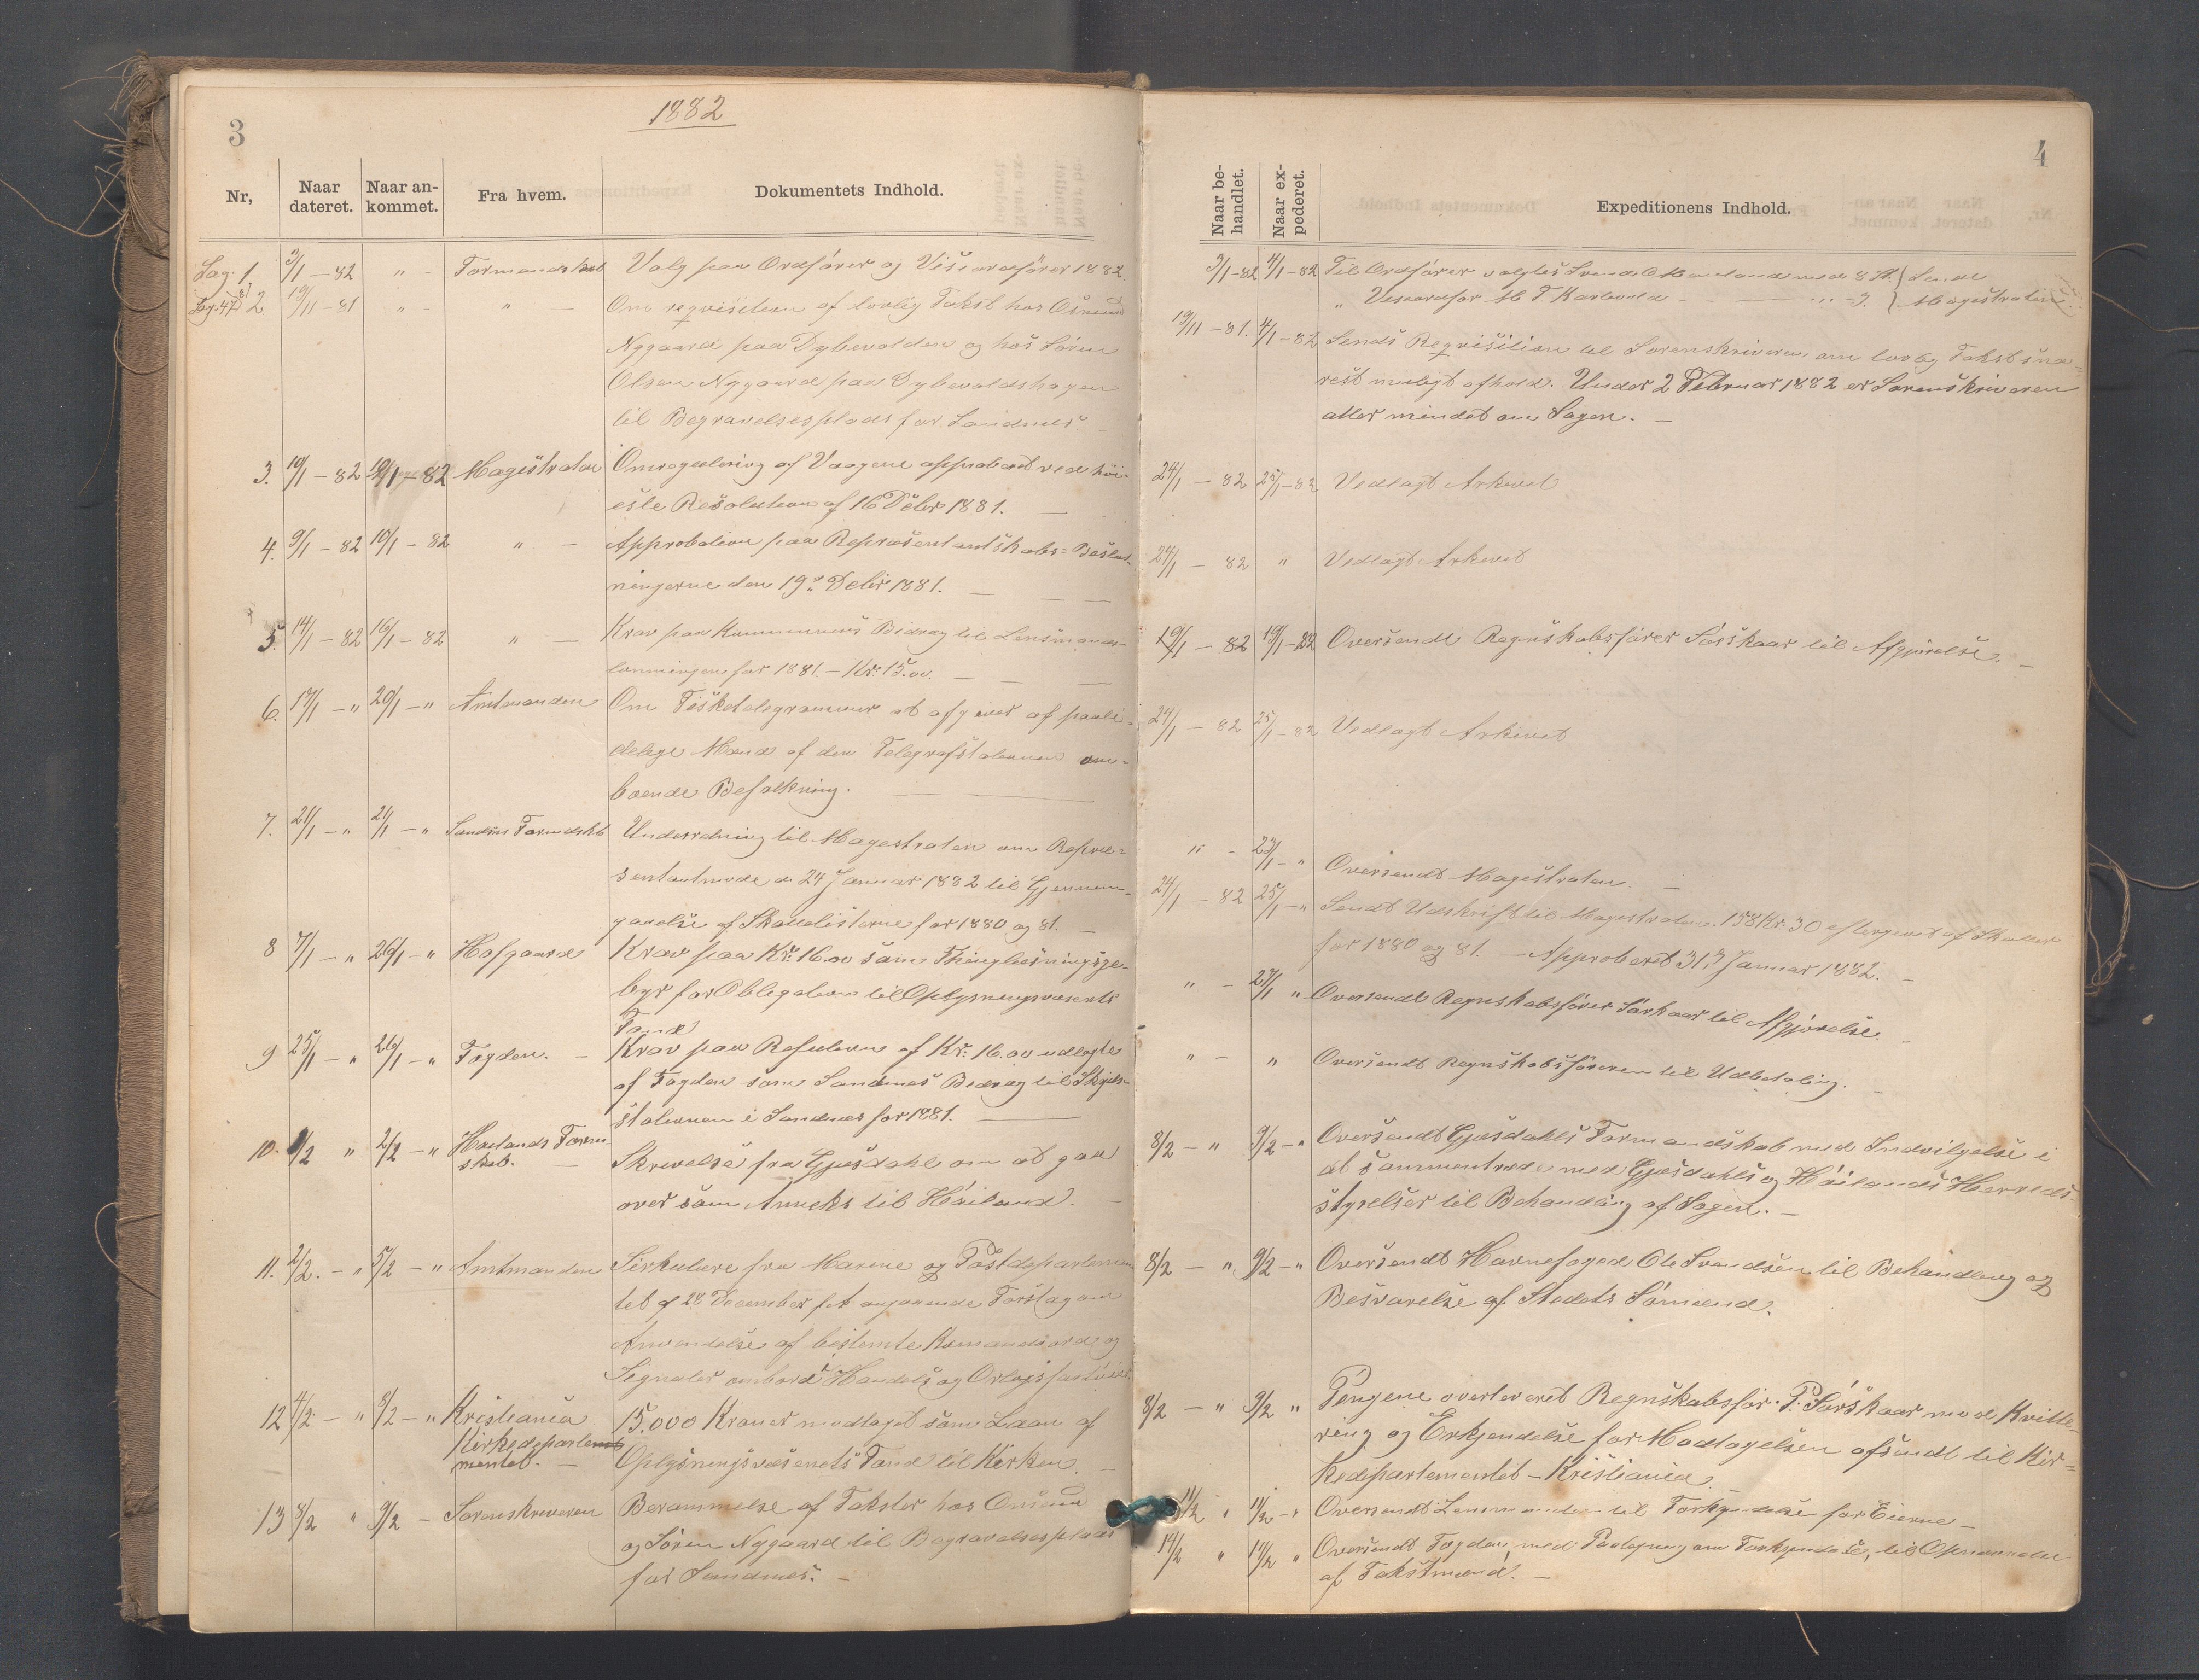 1882
3
Nr,
Naar dateret.
Naar an-kommet.
Fra hvem.
Dokumentets Indhold.
Sag. 1. 3/1 – 82 " - Formandskab Valg paa Ordfører og Viseordfører 1882
2 19/11 – 81 " - " — Om reqvisition af lovlig Takst hos Osmund
Nygaard paa Dybevolden og hos Sören
Olsen Nygaard paa Dybevoldshagen
til Begravelsesplads for Sandnes.
3. 10/1 – 82 – 82 Magistraten Omregulering af Vaagene approberet ved høi-
este Resolution af 16 Dcbr 1881. —
4. 9/1 – 82 10/1 – 82 " — Approbation paa Repræsentantskabs=Beslut-
ningerne den 19de Debr 1881. —
5. 14/1 – 82 16/1 – 82 " — Krav paa Kommunens Bidrag til Lensmands-
lønningen for 1881. – Kr. 15.00. —
6. 17/1 – " 20/1 – " Amtmanden Om Fisketelegrammer at afgives af paali=
delige Mænd af den Telegrafstationen om-
boende Befolkning. —
7. 21/1 – " 21/1 – " Sandnes Formdskb Underretning til Magestraten om Repræ=
sentantmøde d. 24 Januar 1882 til Gjennem-
gaaelse af Skattelisterne for 1880 og 81. —
8 7/1 – " 26/1 – " Hofgaard Krav paa Kr. 16.00 som Thinglæsningsge-
byr for Obligation til Oplysningsvæsenets
Fond
9 25/1 – " 26/1 – " Fogden. – Krav paa Refusion af Kr. 16.00 udlagte
af Fogden som Sandnes Bidrag til Skyds-
stationen i Sandnes for 1881. —
10. 1/2 " 2/2 – " Høilands Form-
skab. — Skrivelse fra Gjesdahl om at gaa
over som Anneks til Höiland. —
11. 2/2. – " 5/2 – " Amtmanden Sirkulære fra Marine og Postdepartemen
tet af 28 December f A angaaende Forslag om
Anvendelse af bestemte Komandoord og
Signaler ombord i Handels og Orlogsfartöier
12 4/2 – " 8/2 – " Kristiania 15.000 Kroner modtaget som Laan af
Kirkedeparte
mentet. — Oplysningsvæsenets Fond til Kirken. —
13 8/2 " 9/2 – Sorenskriveren Berammelse af Takster hos Osmund
og Sören Nygaard til Begravelsesplads
for Sandnes. —
4
Naar be-handlet.
Naar ex-pederet.
Expeditionens Indhold.
3/1-82 4/1-82 Til Ordfører valgtes Svend med 8 St. } Sendt
" Viseordfør M T Karlsvold — — 9. } Magestraten
19/11 – 81. 4/1-82 Sendt Reqvisition til Sorenskriveren om lovlig Takst sna-
rest muligt afhold. Under 2 Februar 1882 er Sorenskriveren
atter mindet om Sagen. —
24/1 – 82 25/1-82 Vedlagt Arkivet
24/1 – 82 " Vedlagt Arkivet
19/1 – 82 19/1-82 Oversendt Regnskabsfører Sörskaar til Afgjörelse. —
24/1 – 82 25/1-82 Vedlagt Arkivet
" - 23/1 – " Oversendt Magestraten. —
24/1 – 82 25/1 – " Sendt Udskrift til Magestraten. 158 Kr. 30 eftergivet af Skatter
for 1880 og 81. – Approberet 31 Januar 1882. —
" – 27/1 " Oversendt Regnskabsfører Sörskaar til Afgjörelse. —
" – " Oversendt Regnskabsföreren til Udbetaling. —
8/2 – " 9/2 – " Oversendt Gjesdahls Formandskab med Indvilgelse i
at sammentræde med Gjesdahls og Höilands Herreds-
styrelser til Behandling af Sagen. —
8/2 – " 9/2 – " Oversendt Havnefoged Ole Svendsen til Behandling og
Besvarelse af Stedets Sömænd.
8/2 – " 9/2 " Pengene overleveret Regnskabsför. P. Sörskaar mod Kvitte-
ring og Erkjendelse for Modtagelsen afsendt til Kir=
kedepartementet – Kristiania.
11/2 " 11/2 – " Oversendt Lensmanden til Forkyndelse for Eierne –
14/2 " 14/2 " Oversendt Fogden, med Paategning om Forkyndelse, til Opnævnelse
af Takstmænd. —